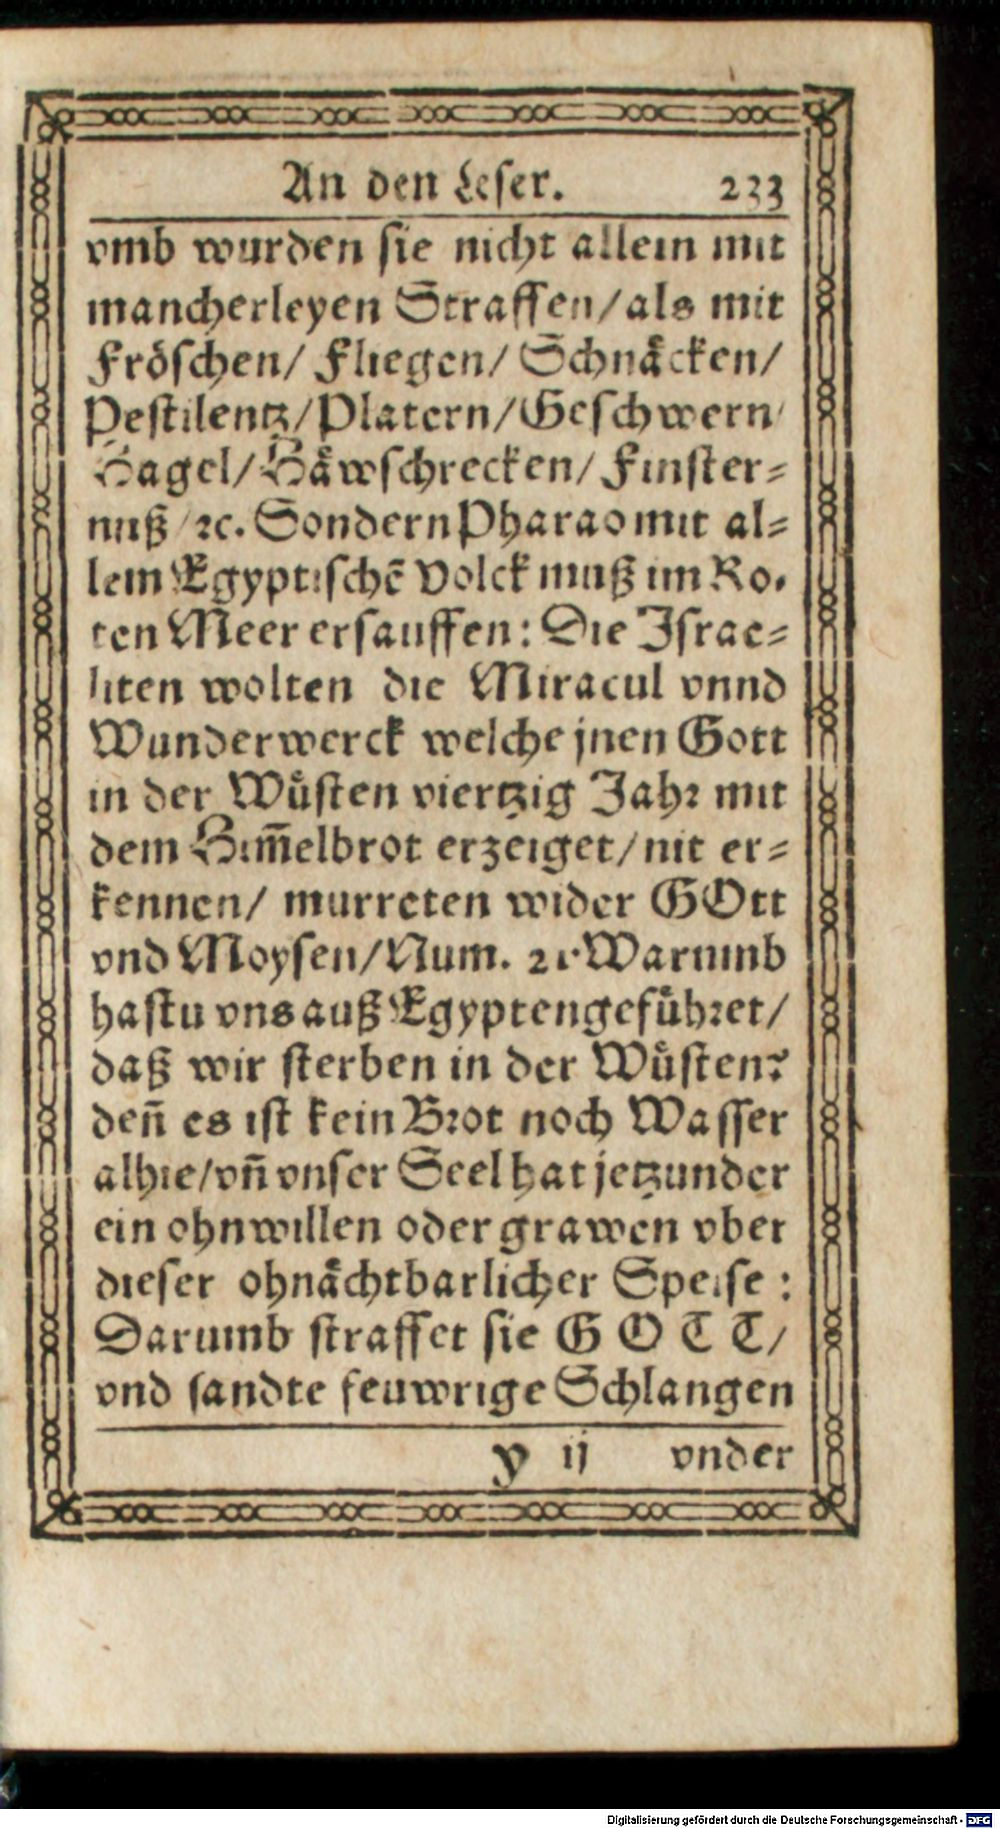 An den Leser. 233
vmb wurden ſie nicht allein mit
mancherleyen Straffen/ als mit
Fröſchen/ Fliegen/ Schnäcken/
Peſtilentz/ Platern/ Geſchwern/
Hagel/ Häwſchrecken/ Finſter-
nuß/ ꝛc. Sondern Pharao mit al-
lem Egyptiſchē Volck muß im Ro-
ten Meer erſauffen: Die Iſrae-
liten wolten die Miracul vnnd
Wunderwerck welche jnen Gott
in der Wüſten viertzig Jahr mit
dem Him̄elbrot erzeiget/ nit er-
kennen/ murreten wider GOtt
vnd Moyſen/ Num. 21. Warumb
haſtu vns auß Egypten geführet/
daß wir ſterben in der Wüſten?
den̄ es iſt kein Brot noch Waſſer
alhie/ vn̄ vnſer Seel hat jetzunder
ein ohnwillen oder grawen vber
dieſer ohnächtbarlicher Speiſe:
Darumb ſtraffet ſie GOTT/
vnd ſandte feuwrige Schlangen
y ij vnder
Digitalisierung gefördert durch die Deutsche Forschungsgemeinschaft - DFG